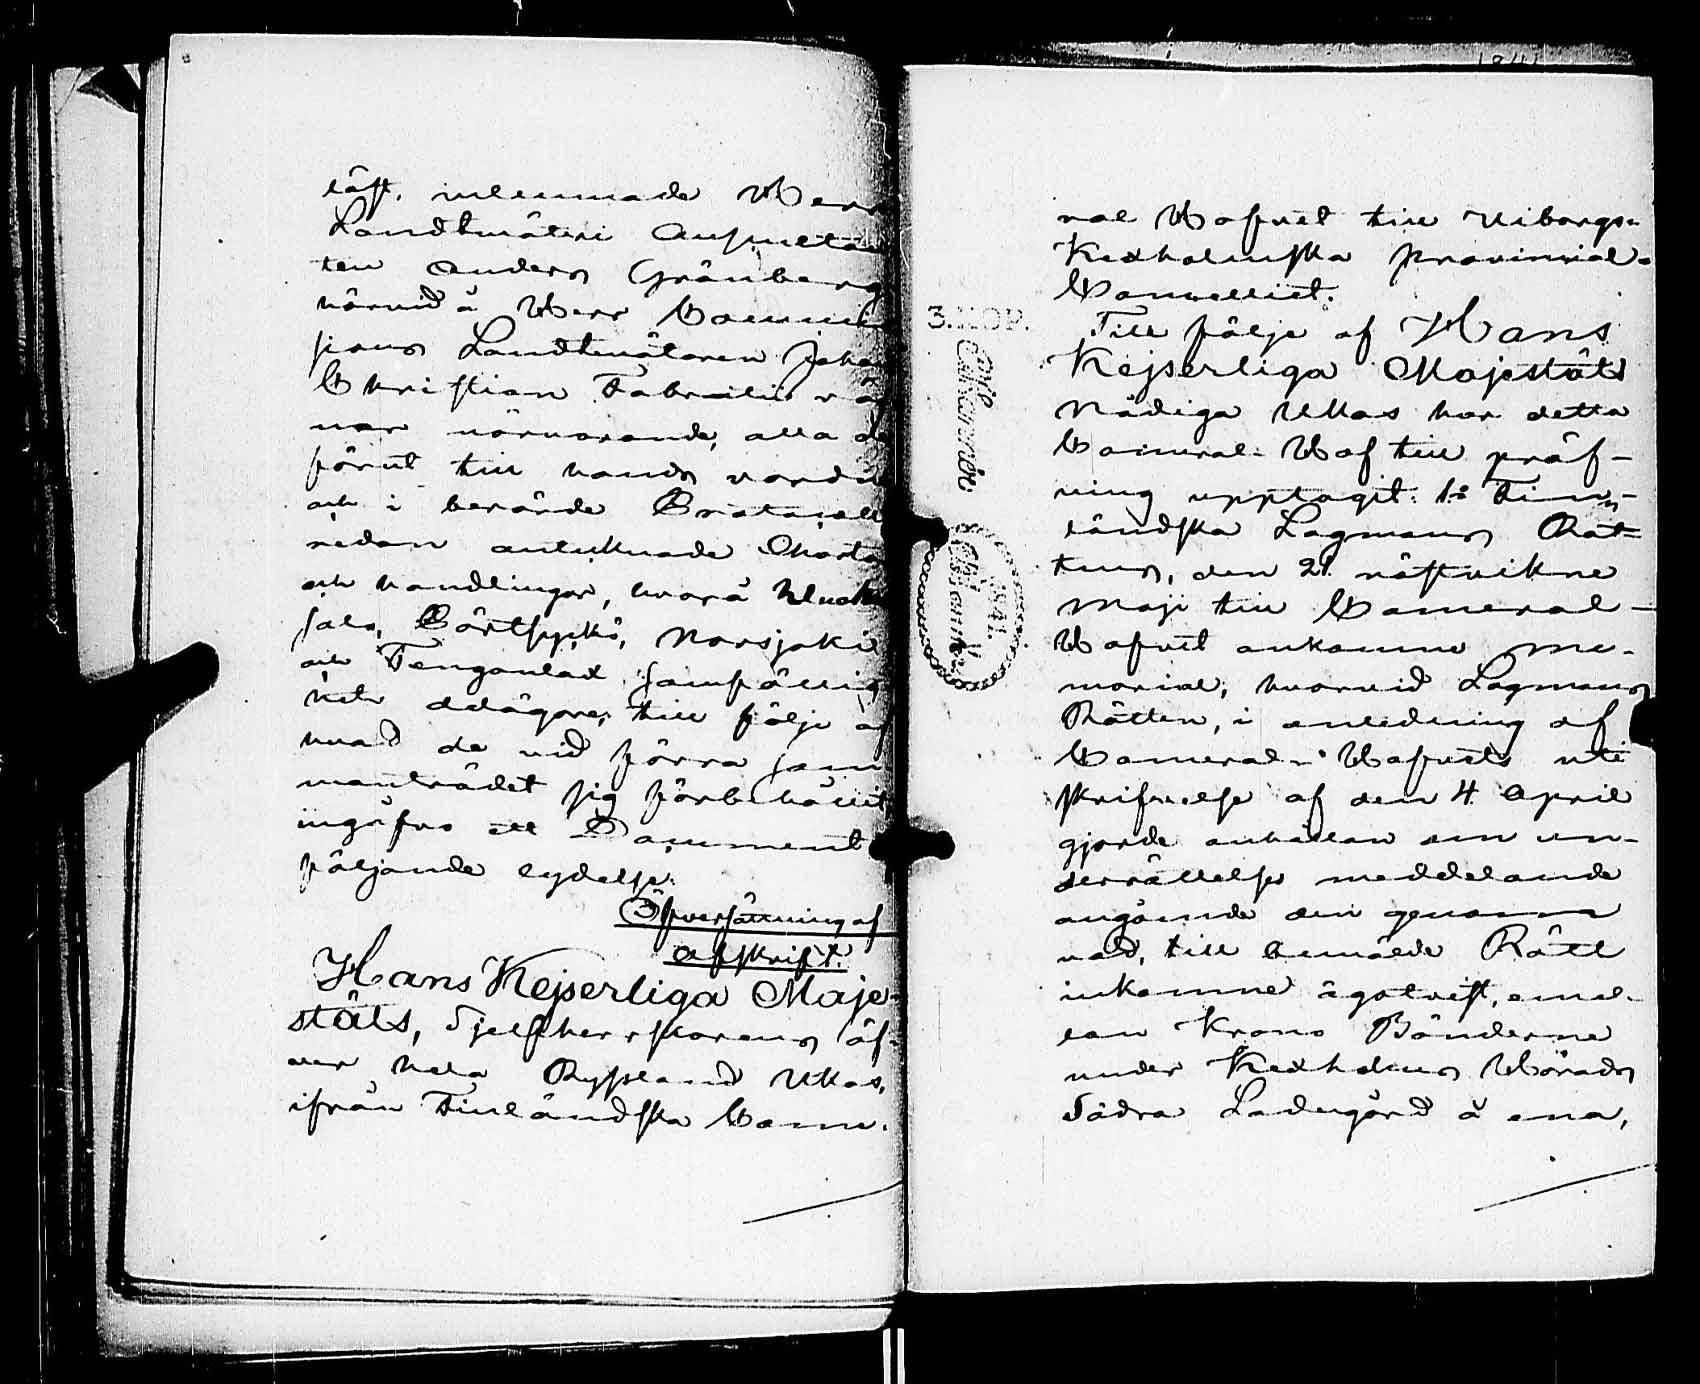 läst, inlemnade Herr
Landtmäteri Auskultan
ten Anders Grönberg
hörvid å Herr Commis
sions Landtmätaren Johan
Christian Fabritii väg
nar närvarande, alla de
förut till hands vordne
och i berörde Protocoll
redan antecknade Charta
och handlingar, hvarå
sala, Norsjoki
och samfällig
hets delägare, till följe af
hvad de vid förra sam
manträdet sig förbehållit
ingåfvo ett Document
följande lydelse:
Öfversättning af
afskrift.
Hans Kejserliga Maje-
stäts, Sjelfherrskarens öf-
ver hela Ryssland Ukas,
ifrån Finländska Came-
ral Hofvet till Viborgs-
Kexholmska Provincial-
Cancelliet.
Till följe af Hans
Kejserliga Majestäts
Nådiga Ukas har detta
Cameral-Hof till pröf-
ning upptagit: 1:o Fin-
ländska Lagmans Rät-
tens, den 21 nästvikne
Maji till Cameral-
Hofvet ankomne me-
morial, hvarvid Lagmans
Rätten, i anledning af
Cameral-Hofvets uti
skrifvelse af den 4 April
gjorde anhållan om un-
derrättelses meddelande
angående den genom
vad, till bemälde Rätt
inkomne ägotvist, emel-
lan Krono Bönderne
under Kexholms Härads
Södra Ladugård å ena,
3. КОР.
1841.